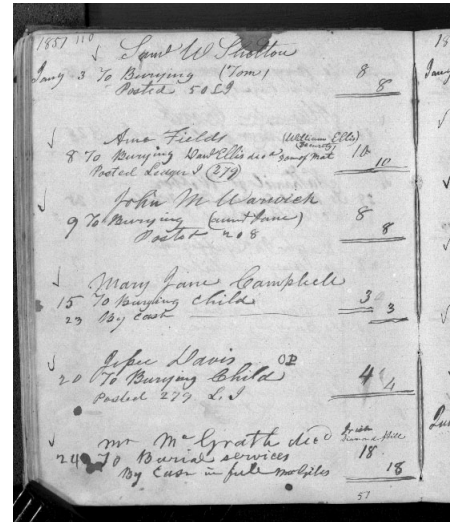 1857 110
Saml W Shelton
Jany 3 To Burying (Tom) 8
Posted 50 L I 8
Ama Fields (William Ellis
8 To Burying Danl Ellis decd Son of Nat 10
Posted Ledger I (279) 10
John M Warwick
9 To Burying (aunt Jane) 8
Posted 208 8
Mary Jane Campbell
15 To Burying Child 3
23 By Cash 3
Davis OP
20 To Burying Child 4
Posted 279 L. I 4
Mr McGrath decd
24 To Burial services 18
By Cash in full 18
51